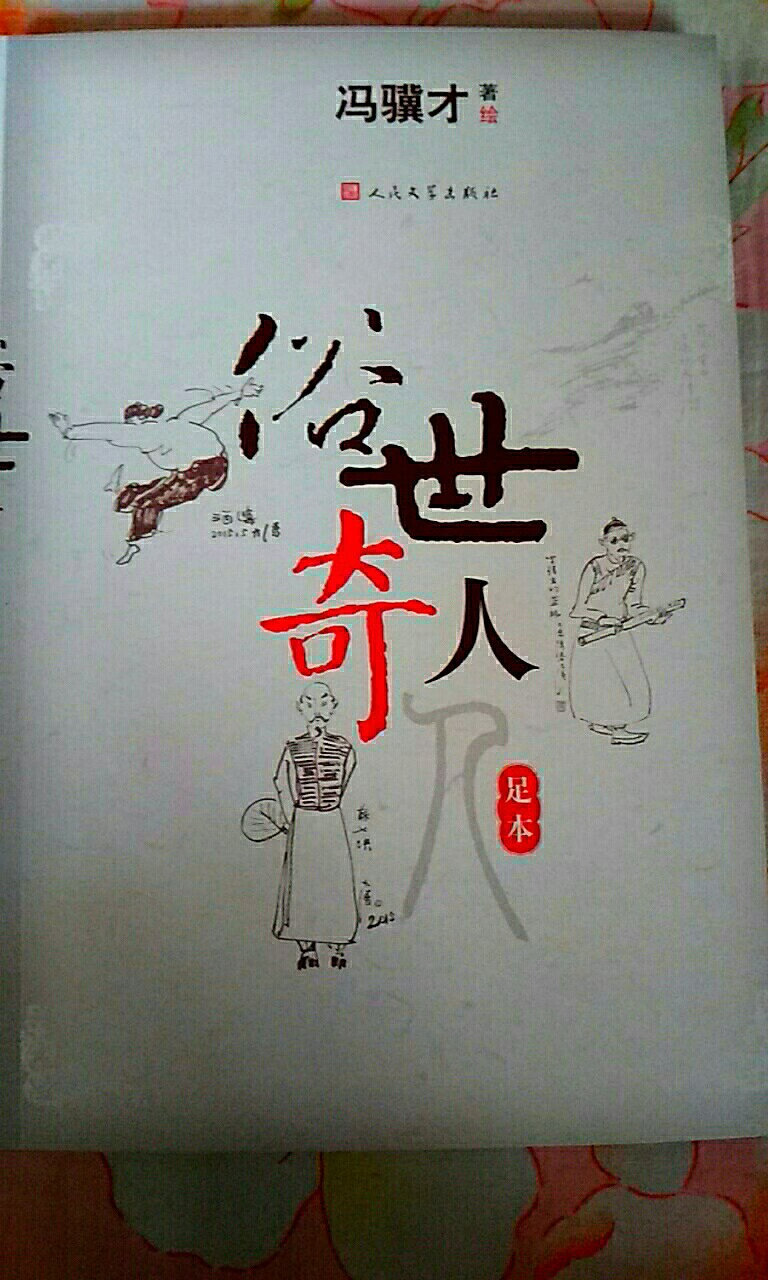 冯骥才 著
绘
人民文学出版社
俗世
奇人
足本
2015.5
苏七块
大冯
2015